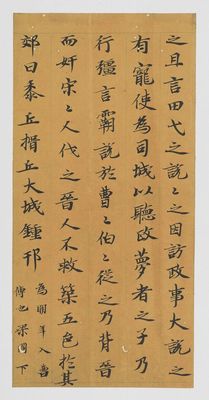 之且言田弋之説〻之因訪政事大説之
有寵使為司城以聽政夢者之子乃
行彊言霸説於曹〻伯〻從之乃背晉
而奸宋〻人伐之晉人不救築五邑於其
郊曰黍丘揖丘大城鍾邗
為明年入曹
傳也梁國下